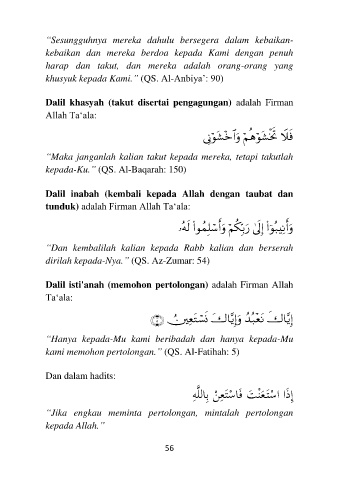 “Sesungguhnya mereka dahulu bersegera dalam kebaikan-
kebaikan dan mereka berdoa kepada Kami dengan penuh
harap dan takut, dan mereka adalah orang-orang yang
khusyuk kepada Kami.” (QS. Al-Anbiya’: 90)
Dalil khasyah (takut disertai pengagungan) adalah Firman
Allah Ta‘ala:
فَلَا تَخْشَوْهُمْ وَاخْشَوْنِي
“Maka janganlah kalian takut kepada mereka, tetapi takutlah
kepada-Ku.” (QS. Al-Baqarah: 150)
Dalil inabah (kembali kepada Allah dengan taubat dan
tunduk) adalah Firman Allah Ta‘ala:
وَأَنِيبُوا إِلَىٰ رَبِّكُمْ وَأَسْلِمُوا لَهُ
“Dan kembalilah kalian kepada Rabb kalian dan berserah
dirilah kepada-Nya.” (QS. Az-Zumar: 54)
Dalil isti'anah (memohon pertolongan) adalah Firman Allah
Ta‘ala:
إِيَّاكَ نَعْبُدُ وَإِيَّاكَ نَسْتَعِينُ ﴿٥﴾
“Hanya kepada-Mu kami beribadah dan hanya kepada-Mu
kami memohon pertolongan.” (QS. Al-Fatihah: 5)
Dan dalam hadits:
إِذَا اسْتَعَنْتَ فَاسْتَعِنْ بِاللَّهِ
“Jika engkau meminta pertolongan, mintalah pertolongan
kepada Allah.”
56